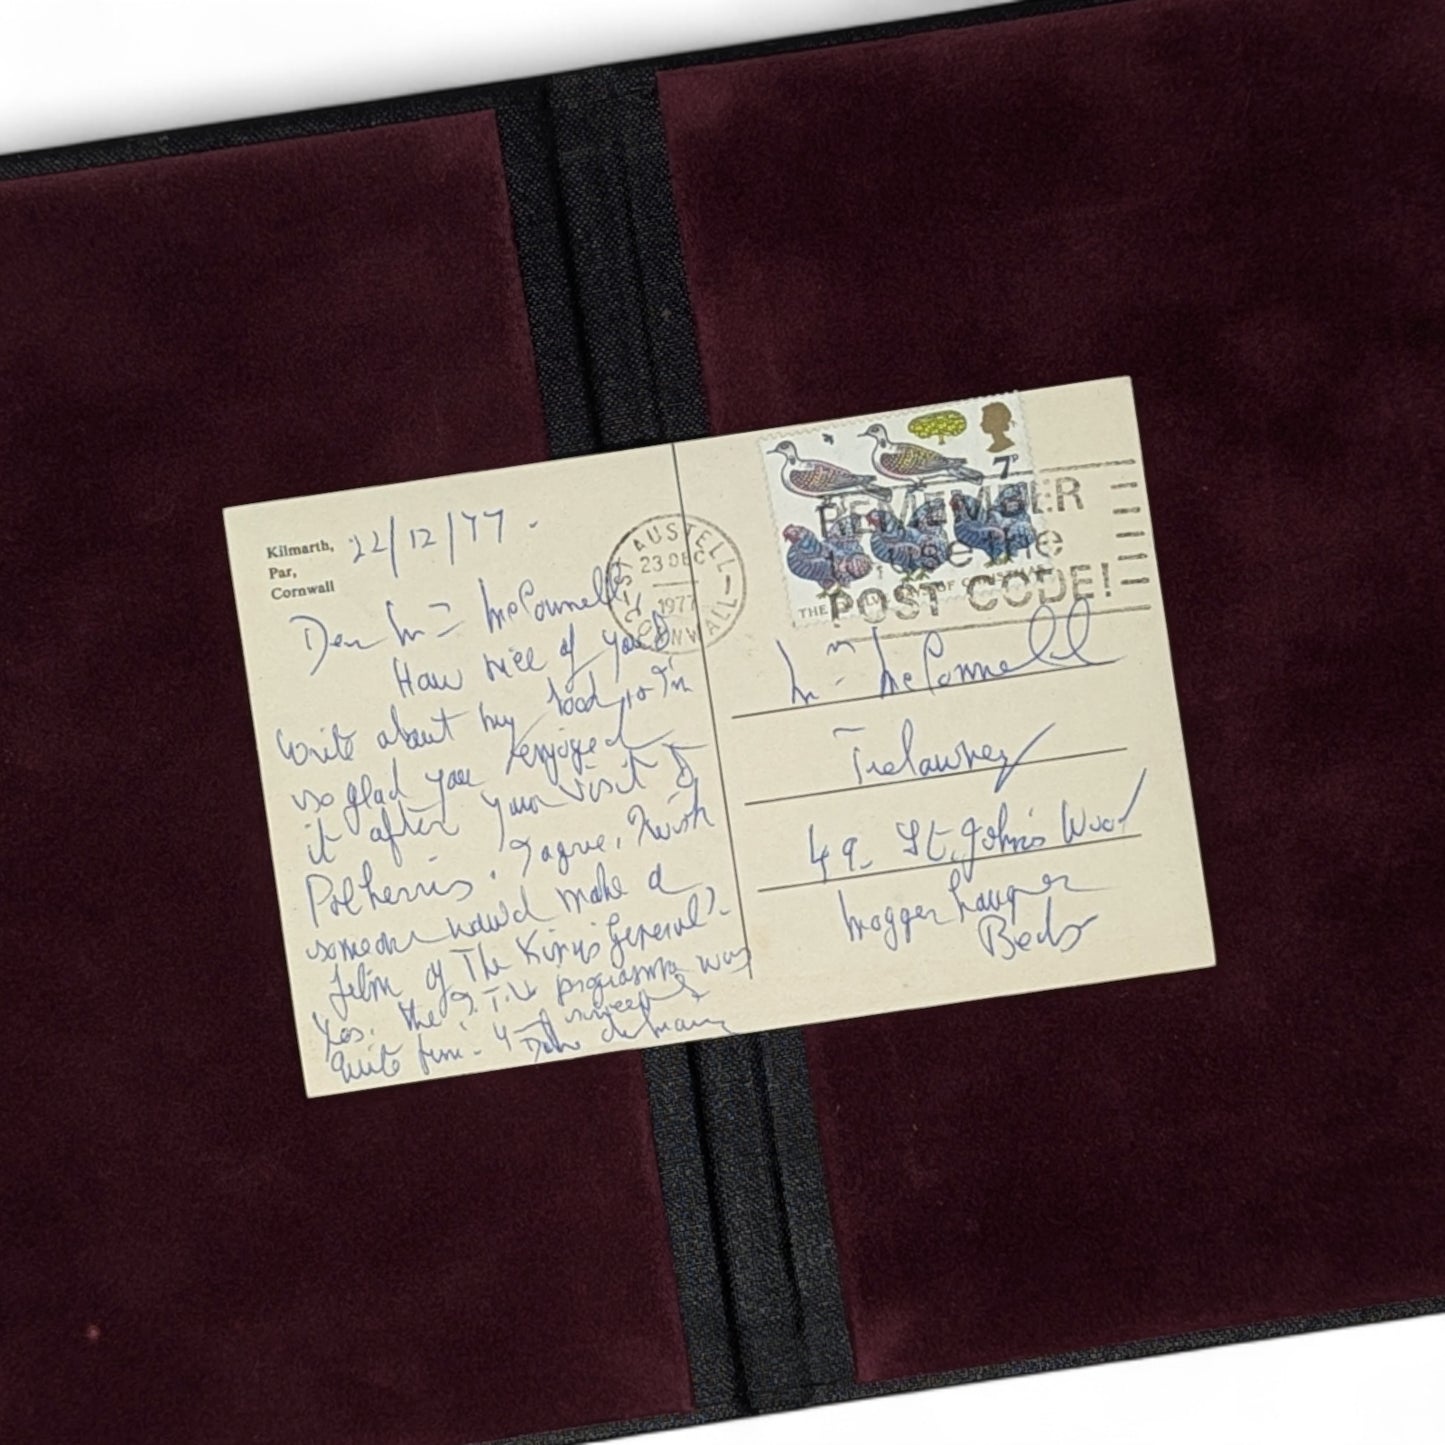 Kilmarth,
Par,
Cornwall
22/12/77.
Dear Mrs McConnell
How nice of you to
write about my book, so I'm
so glad you enjoyed
it after your visit to
Polkerris. I agree, I wish
someone would make a
film of The King's General.
Yes. the T.V. programme was
quite fun.
Daphne du Maurier
ST AUSTELL
23 DEC
1977
CORNWALL
7P
REMEMBER
to use the
POST CODE!
THE OF CHRISTMAS
Mrs McConnell
Trelawney
49. St. John's Wood
Moggerhanger
Beds